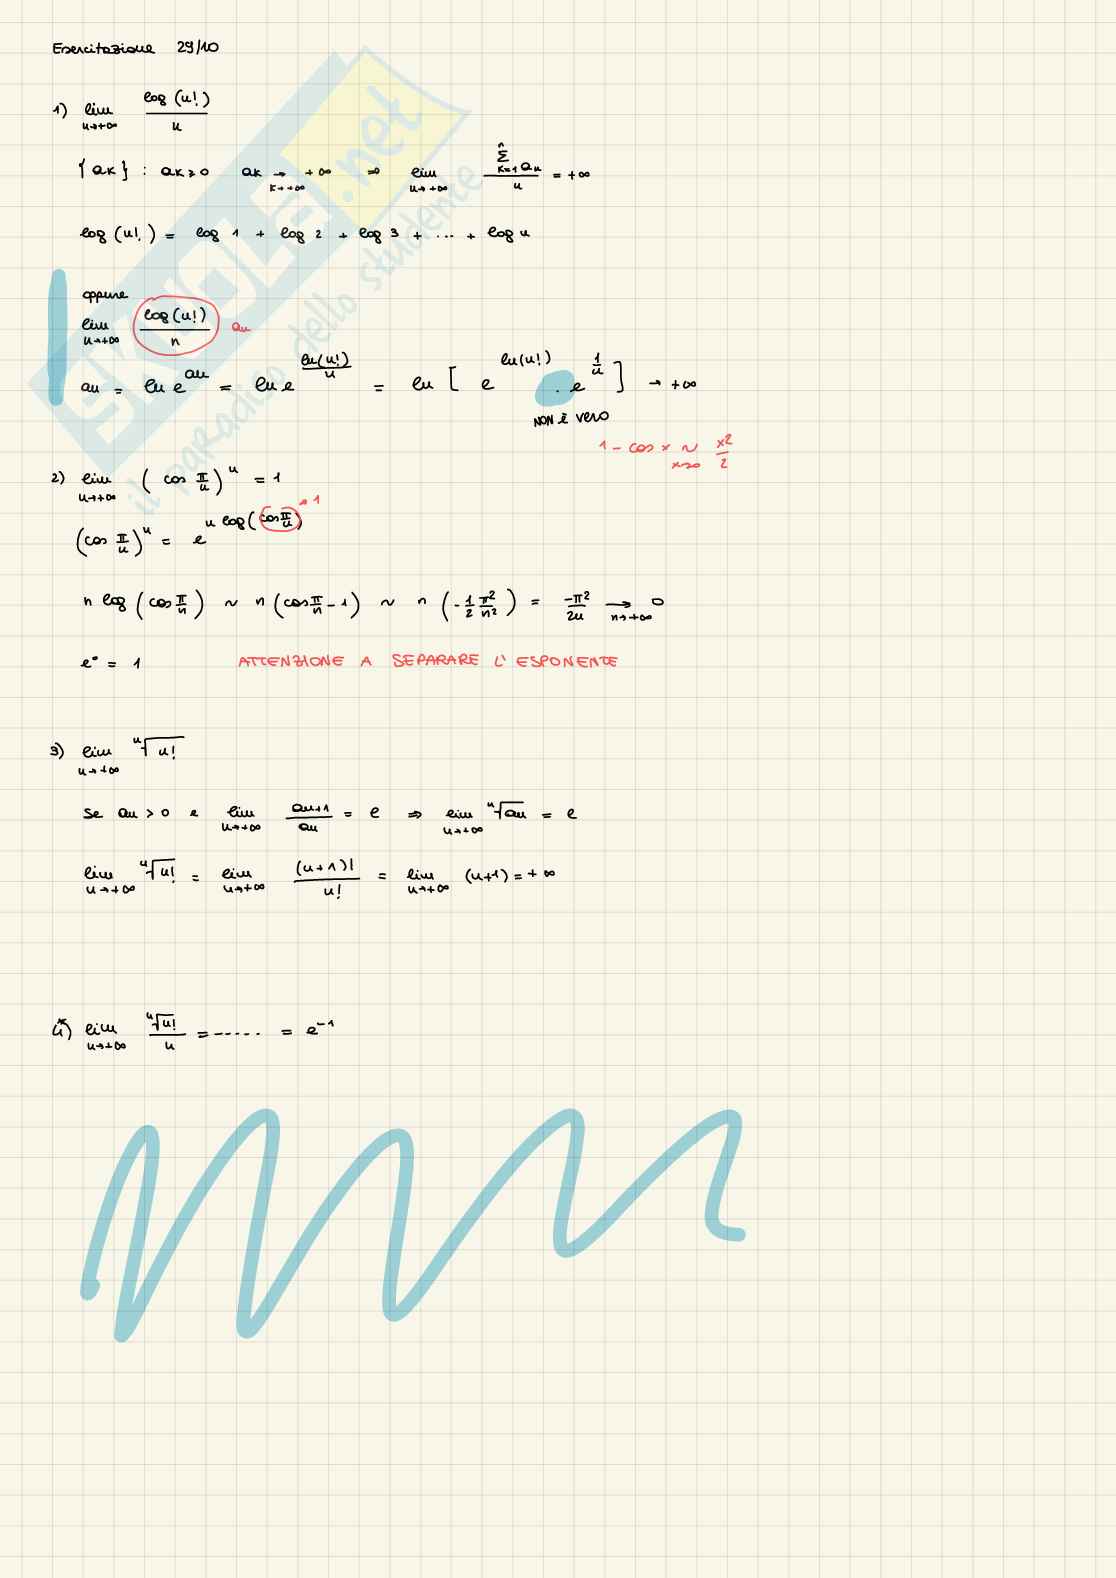 Esercitazione 29/10
1) lim n→+∞ log(n!)/n
{ak} : ak ≥ 0 ak → k→+∞ +∞ ⇒ lim n→+∞ (Σ k=1 n an)/n = +∞
log(n!) = log 1 + log 2 + log 3 + ... + log n
oppure
lim n→+∞ log(n!)/n an
an = ln e^an = ln e^(ln(n!)/n) = ln [ e^ln(n!) · e^(1/n) ] → +∞
NON È VERO
1 - cos x ~ x→0 x²/2
2) lim n→+∞ ( cos π/n )^n = 1
(cos π/n)^n = e^(n log(cos π/n)) → 1
n log (cos π/n) ~ n (cos π/n - 1) ~ n (-1/2 π²/n²) = -π²/2n → n→+∞ 0
e° = 1 ATTENZIONE A SEPARARE L' ESPONENTE
3) lim n→+∞ ⁿ√n!
Se an > 0 e lim n→+∞ an+1/an = e ⇒ lim n→+∞ ⁿ√an = e
lim n→+∞ ⁿ√n! = lim n→+∞ (n+1)!/n! = lim n→+∞ (n+1) = +∞
4*) lim n→+∞ ⁿ√n!/n = ----- = e⁻¹
SKUOLA.net
il paradiso dello studente